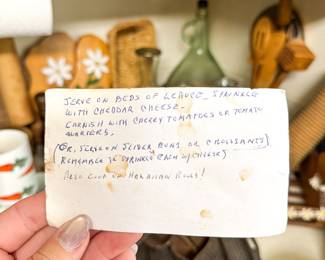 SERVE ON BEDS OF LEAUCE, SPRINKLE
WITH CHEDDAR CHEESE.
GARNISH WITH CHERRY TOMATOES OR TOMATO
QUARTERS.
(OR, SERVE ON SLIDER BUNS OR CROISSANTS)
REMEMBER TO SPRINKLE EACH W/ CHEESE)
ALSO GOOD ON HAWAIIAN ROLLS!